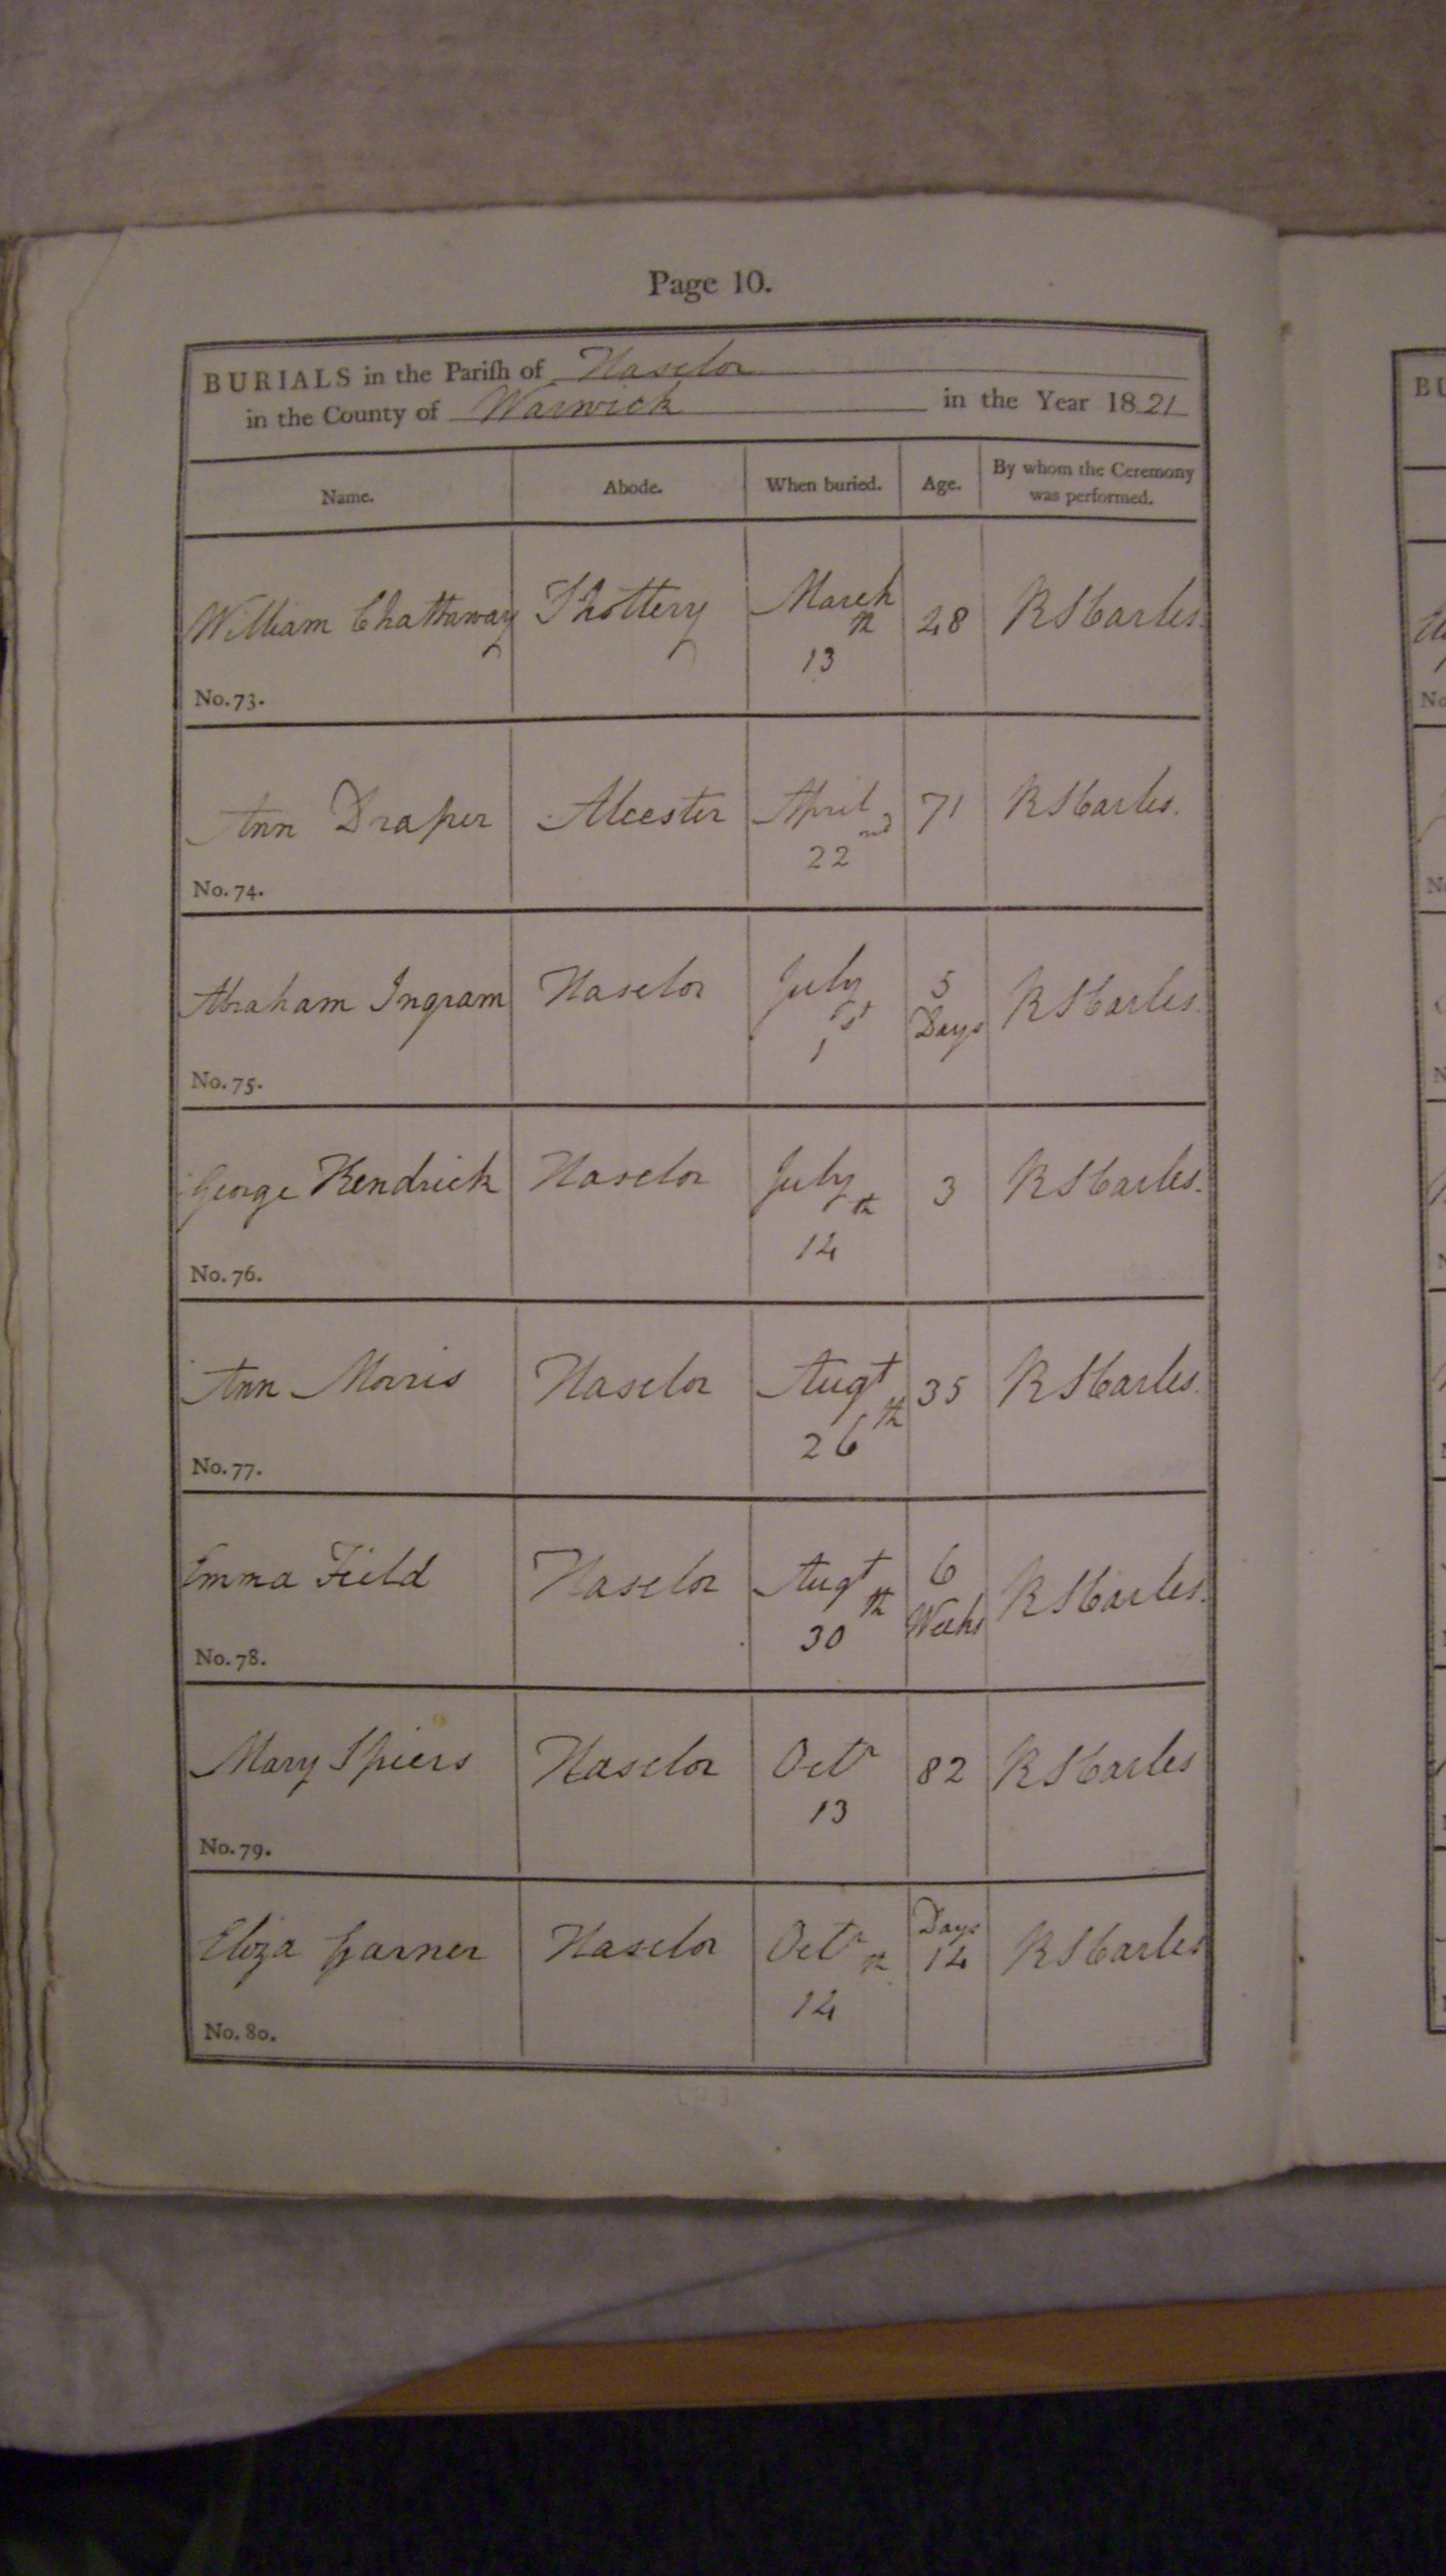 Page 10.
BURIALS in the Pariſh of Haselor
in the County of Warwick in the Year 1821
Name. Abode. When buried. Age. By whom the Ceremony was performed.
William Chattaway Shottery March 13th 48 R S Carles.
No. 73.
Ann Draper Alcester April 22nd 71 R S Carles.
No. 74.
Abraham Ingram Haselor July 1st 5 Days R S Carles.
No. 75.
George Kendrick Haselor July 14th 3 R S Carles.
No. 76.
Ann Morris Haselor Augt 26th 35 R S Carles.
No. 77.
Emma Field Haselor Augt 30th 6 Weeks R S Carles.
No. 78.
Mary Spiers Haselor Octr 13 82 R S Carles
No. 79.
Eliza Garner Haselor Octr 14th Days 14 R S Carles
No. 80.
BU
No